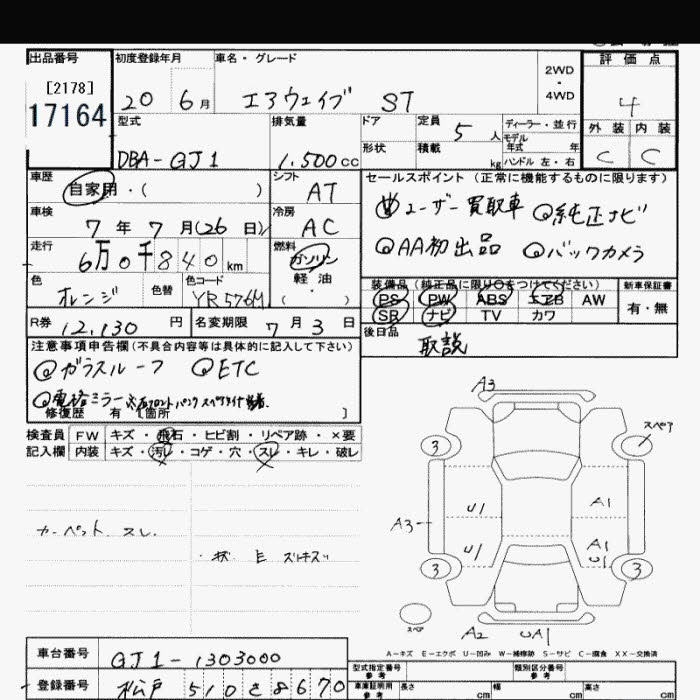 出品番号 初度登録年月 車名・グレード 評価点
[2178]
17164
20 6月 エアウェイブ ST
2WD
・
4WD
4
型式 排気量 ドア 定員 5人 ディーラー・並行
モデル年式 年
外装 内装
DBA-GJ1 1.500cc 形状 積載 kg ハンドル 左・右 C C
車歴 シフト セールスポイント(正常に機能するものに限ります)
自家用・( ) AT
ユーザー買取車 純正ナビ
車検 冷房
7年7月(26日) AC
AA初出品 バックカメラ
走行 燃料
6万0千840km ガソリン
軽油
( ・ )
色 色替 色コード
オレンジ YR576M
装備品(純正品に限り○をつけてください) 新車保証書
PS PW ABS エアB AW 有・無
SR ナビ TV カワ
R券 12,130円 名変期限 7月3日
後日品 取説
注意事項申告欄(不具合内容等は具体的に記入して下さい)
ガラスルーフ ETC
電格ミラー
修復歴 有 [箇所 ]
検査員 FW キズ・飛石・ヒビ割・リペア跡・×要
記入欄 内装 キズ・汚レ・コゲ・穴・スレ・キレ・破レ
カーペット スレ
A3
3
スペア
U1 A1
A3
U1 A1
U1
3 3
スペア
A2 UA1
A−キズ E−エクボ U−凹み W−補修跡 S−サビ C−腐食 XX−交換済
車台番号 GJ1-1303000
登録番号 松戸 510 さ 8670
型式指定番号 参考 類別区分番号 参考
車庫証明用 参考 長さ cm 幅 cm 高さ cm